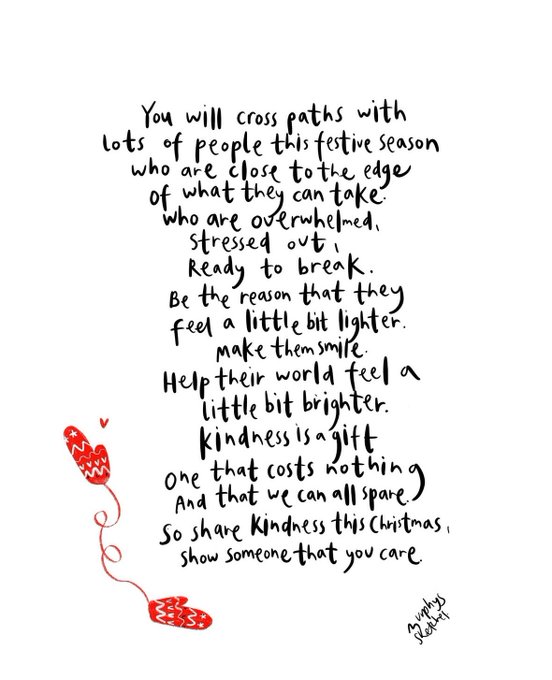 You will cross paths with
lots of people this festive season
who are close to the edge
of what they can take.
who are overwhelmed,
stressed out,
Ready to break.
Be the reason that they
feel a little bit lighter.
make them smile.
Help their world feel a
little bit brighter.
kindness is a gift
one that costs nothing
And that we can all spare.
So share kindness this Christmas,
show someone that you care.
murphys
sketches